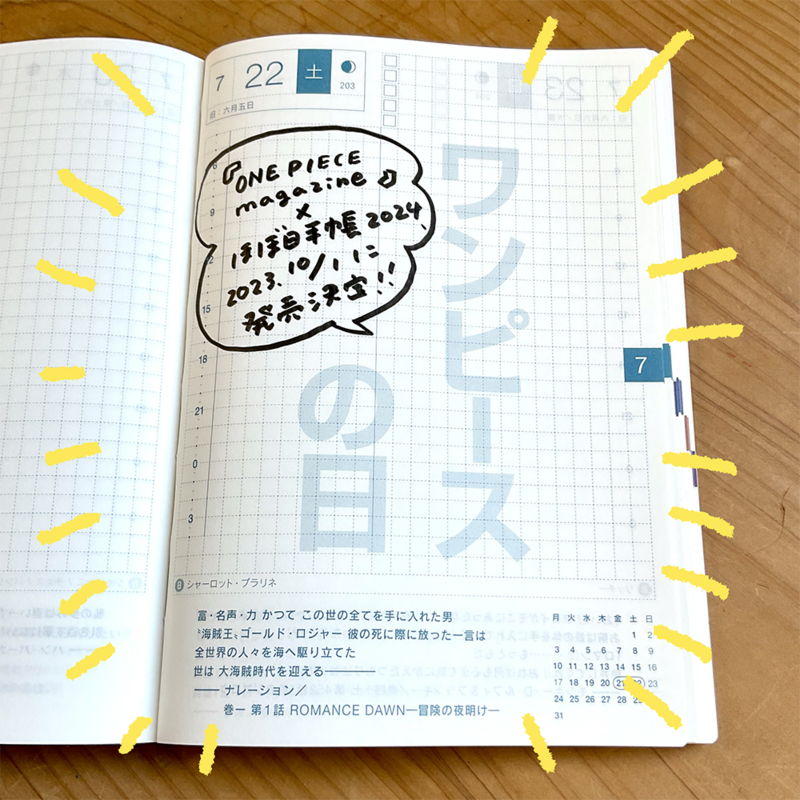 7 22 土
203
旧：六月五日
『ONE PIECE
magazine』
×
ほぼ日手帳2024、
2023.10/1に
発売決定!!
9
15
18
21
0
3
ワンピース
の日
7
B シャーロット・プラリネ
富・名声・力 かつて この世の全てを手に入れた男
〝海賊王〟ゴールド・ロジャー 彼の死に際に放った一言は
全世界の人々を海へ駆り立てた
世は 大海賊時代を迎える――
――ナレーション／
――巻一 第1話 ROMANCE DAWN―冒険の夜明け―
月 火 水 木 金 土 日
1 2
3 4 5 6 7 8 9
10 11 12 13 14 15 16
17 18 19 20 21 22 23
24 25 26 27 28 29
31